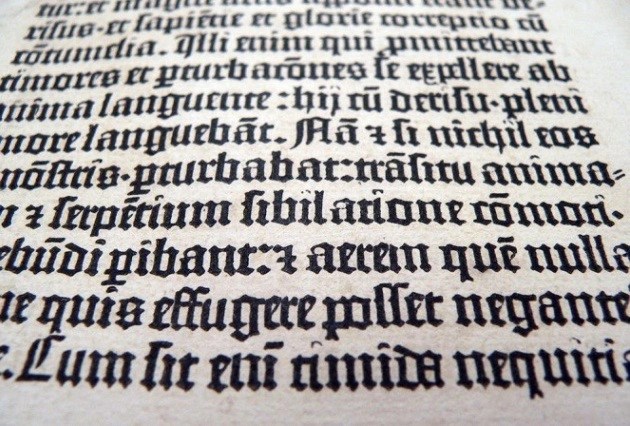 tur: et magice
risus· et sapiētie et glorie correptio cū
cōtumelia. Illi enim qui ꝓmittebant
timores et ꝑturbacōnes se expellere ab
anima languente: hij cū derisu· pleni
more languebāt. Nā ⁊ si nichil eos
mōstris· ꝑturbabat: trāsitu anima-
⁊ serpētium sibilatione cōmoti·
ebūdi ꝑibant: ⁊ aerem quē nulla
ne quis effugere posset negante
Cum sit enī timida nequiti